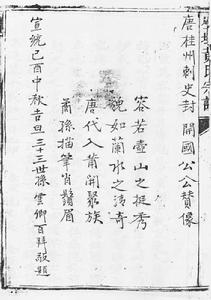 黃氏宗譜
唐桂州刺史封 開國公公贊像
容若壺山之挺秀
貌如蘭水之清奇
唐代入莆開聚族
孫描筆肖鬚眉
宣統己酉中秋吉旦三十三世孫雲卿百拜敬題